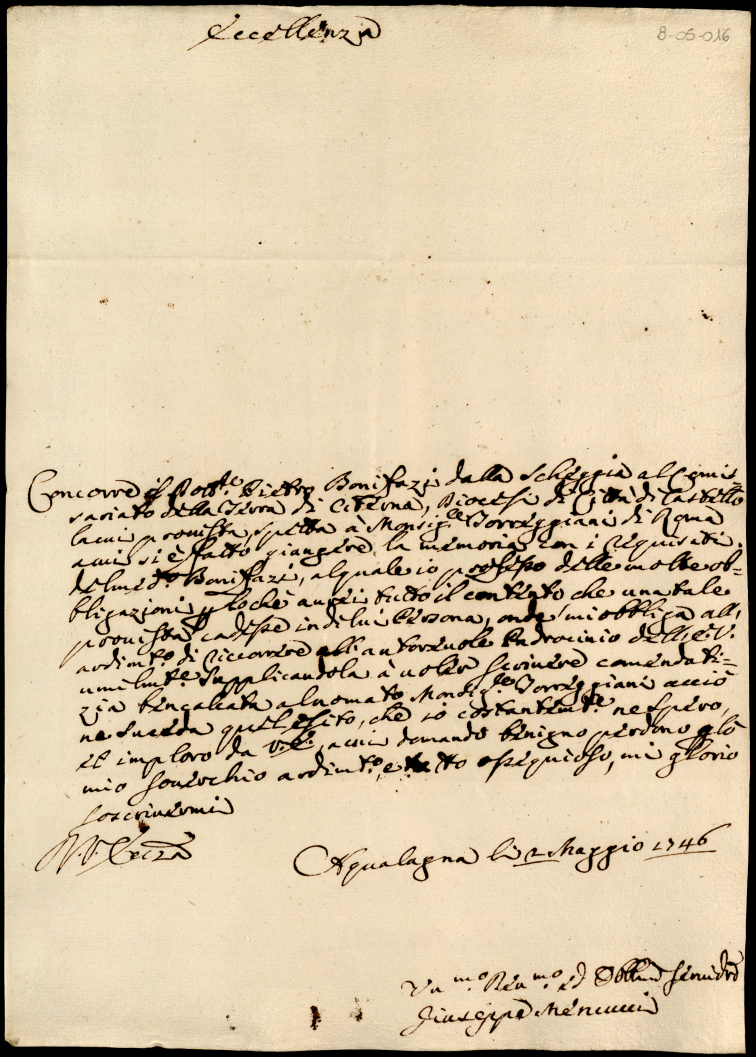 Eccellenza
8-05-016
Concorre il Dott.re Pietro Bonifazi dalla Scheggia al Comis=
sariato della Terra di Citerna, Diocesi di Città di Castello
la cui provista, spetta à Monsig.re Torreggiani di Roma
a cui si è fatto giungere la memoria con i requisiti
del med.o Bonifazi, al quale io professo delle molte ob=
bligazioni p loche aurei tutto il contento che una tale
provista cadesse in di lui Persona, onde mi obbliga all'
ardim.to di ricorrere all'autoreuole Padrocinio dell'E.V.
umilm.te supplicandola à uoler scriuere comendati=
zia al nomato Monsig.re Torreggiani acciò
ne sueda quel esito, che io costantem.te ne spero,
et imploro da V.E., a cui domando benigno perdono p lo
mio souerchio ardim.to, e tutto ossequioso, mi glorio
soscriuermi
D. V. Eccza
Aqualagna li 2 Maggio 1746
Um.mo Deu.mo ed Obblmo Seruidre
Giuseppe Mencucci